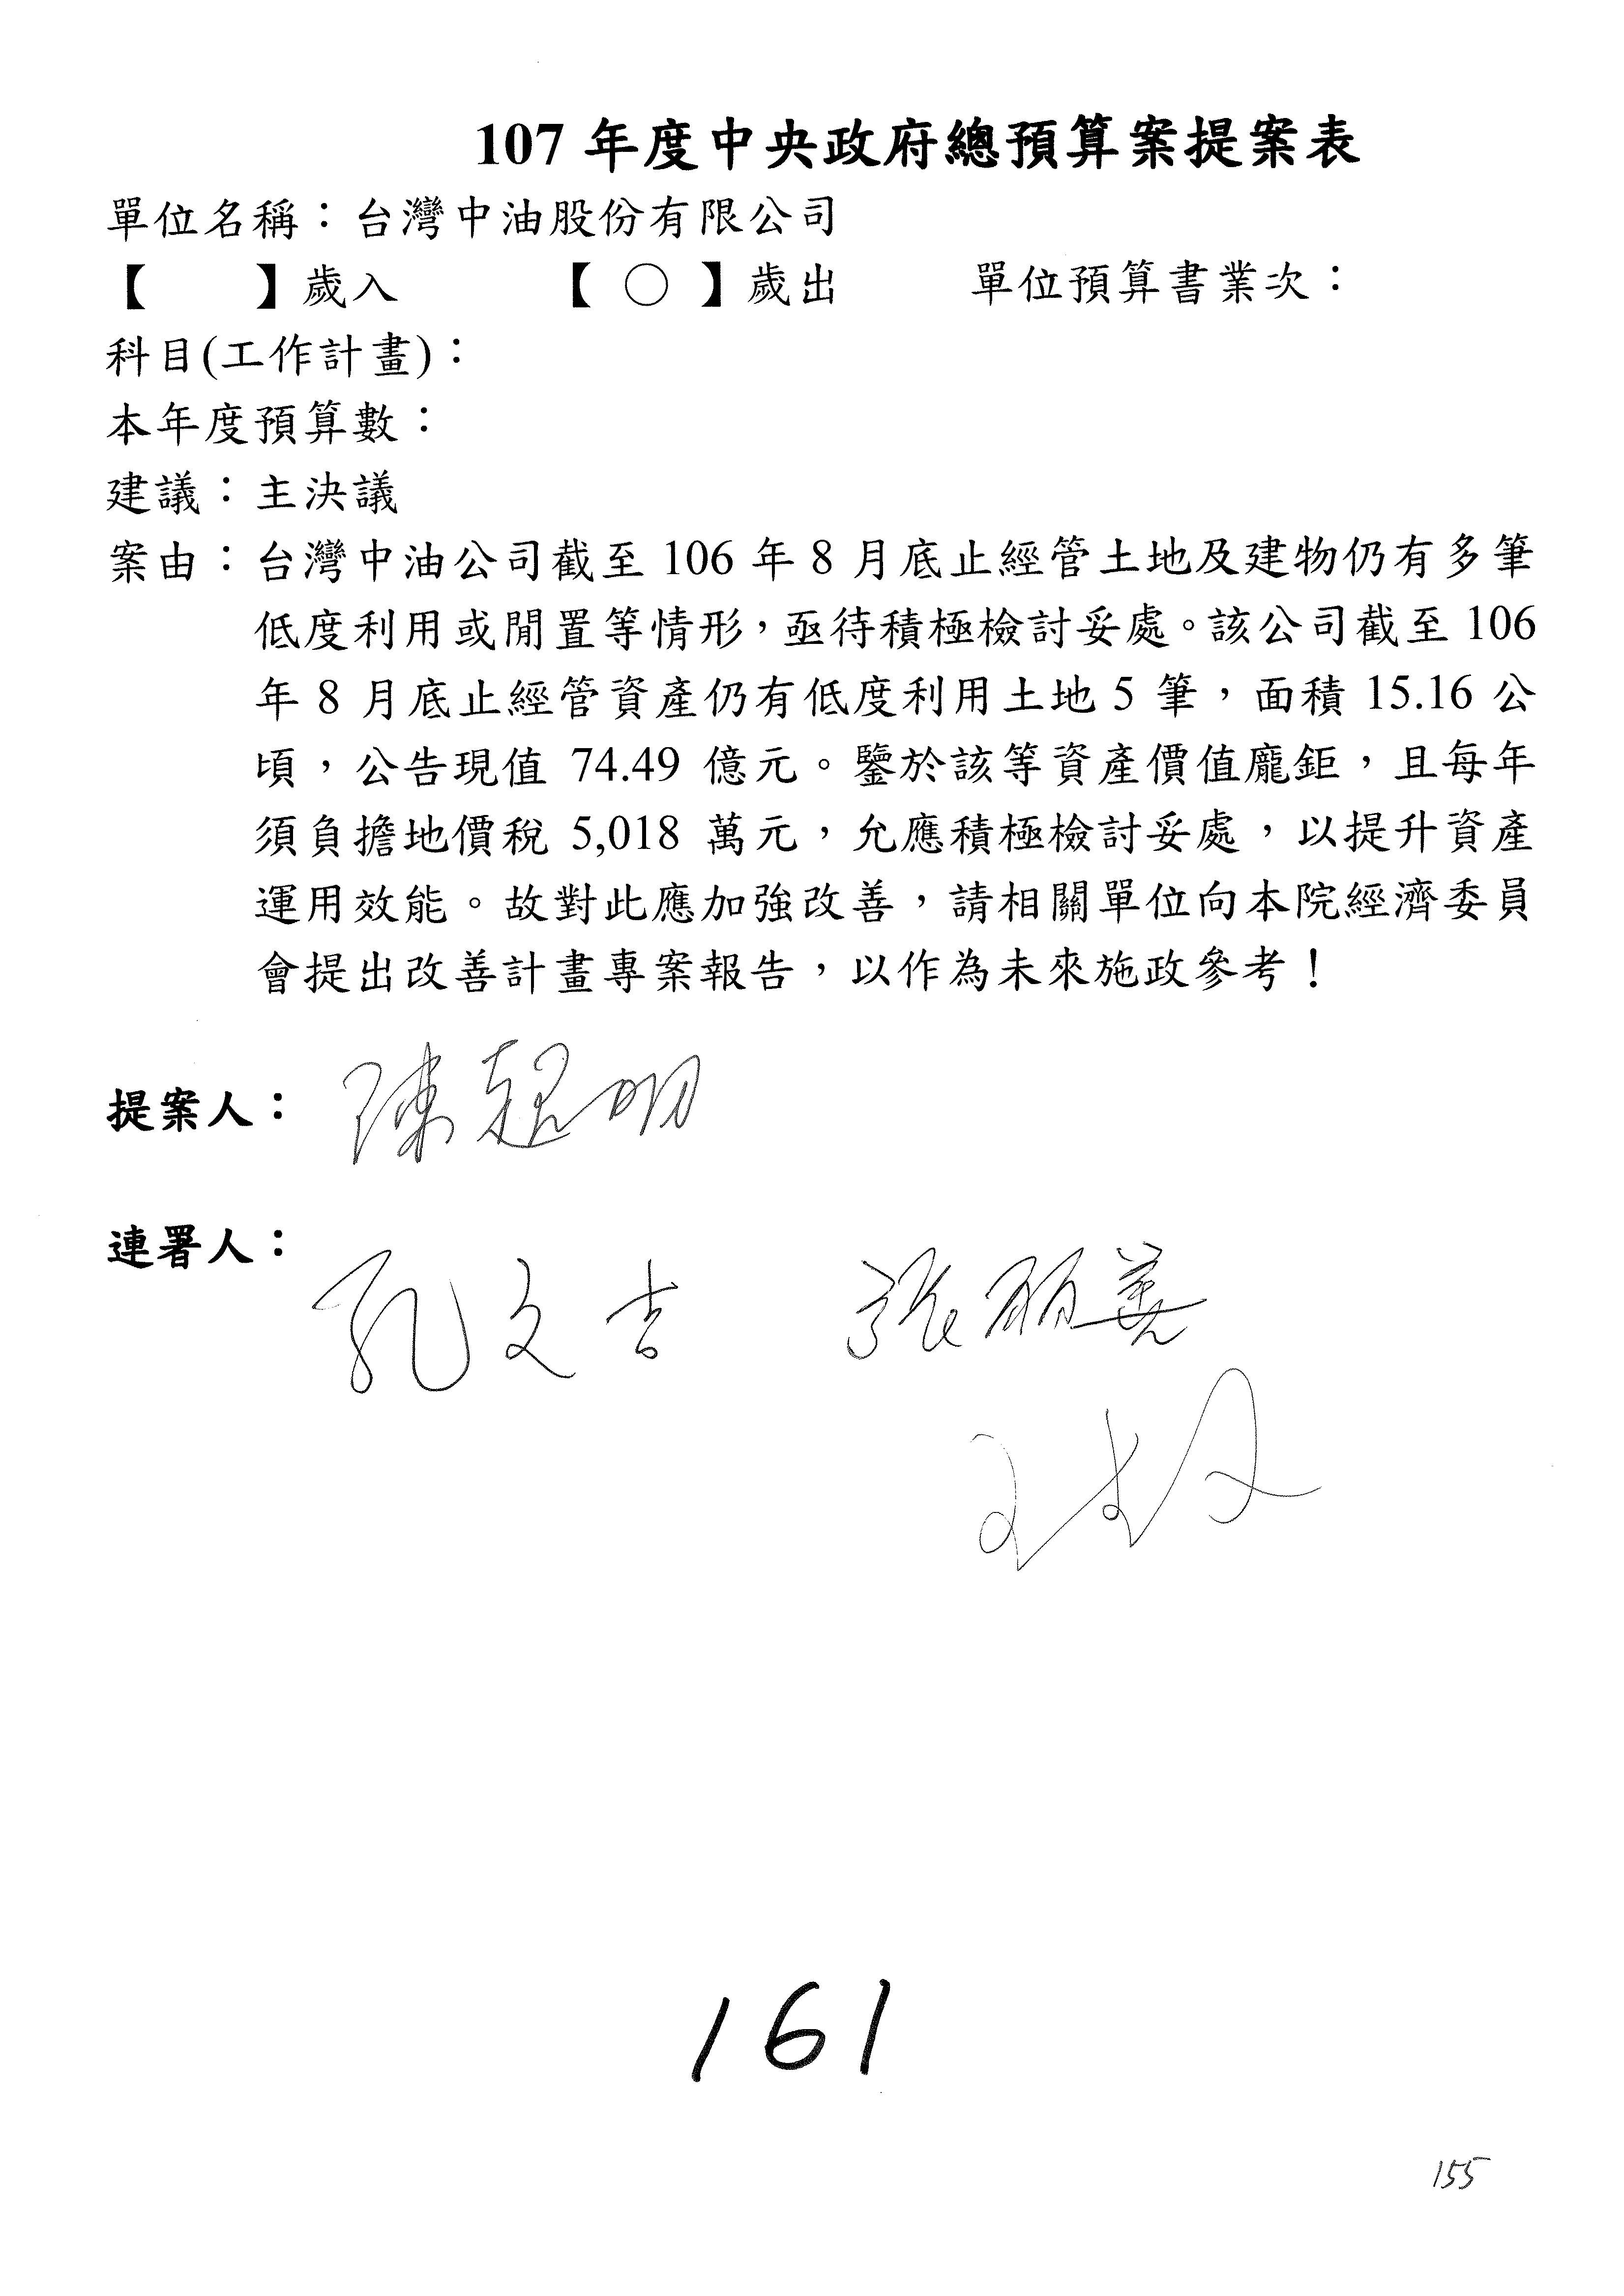 107 年度中央政府總預算案提案表
單位名稱：台灣中油股份有限公司
【　　】歲入　　【 ○ 】歲出　　單位預算書業次：
科目(工作計畫)：
本年度預算數：
建議：主決議
案由：台灣中油公司截至 106 年 8 月底止經管土地及建物仍有多筆
低度利用或閒置等情形，亟待積極檢討妥處。該公司截至 106
年 8 月底止經管資產仍有低度利用土地 5 筆，面積 15.16 公
頃，公告現值 74.49 億元。鑒於該等資產價值龐鉅，且每年
須負擔地價稅 5,018 萬元，允應積極檢討妥處，以提升資產
運用效能。故對此應加強改善，請相關單位向本院經濟委員
會提出改善計畫專案報告，以作為未來施政參考！
提案人：陳超明
連署人：
孔文吉　張麗善
161
155